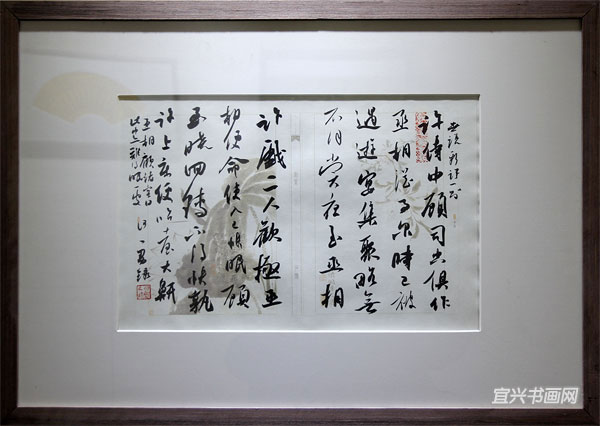 世說新語一則
許侍中顧司空俱作
丞相從事尔時已被
遇遊宴集聚略無
不同嘗夜至丞相
許戲二人歡極丞
相便命使入己帳眠顧
至曉回轉不得快孰
許上床便咍臺大鼾
丞相顧諸客曰
此中亦難得眠處
宜兴书画网